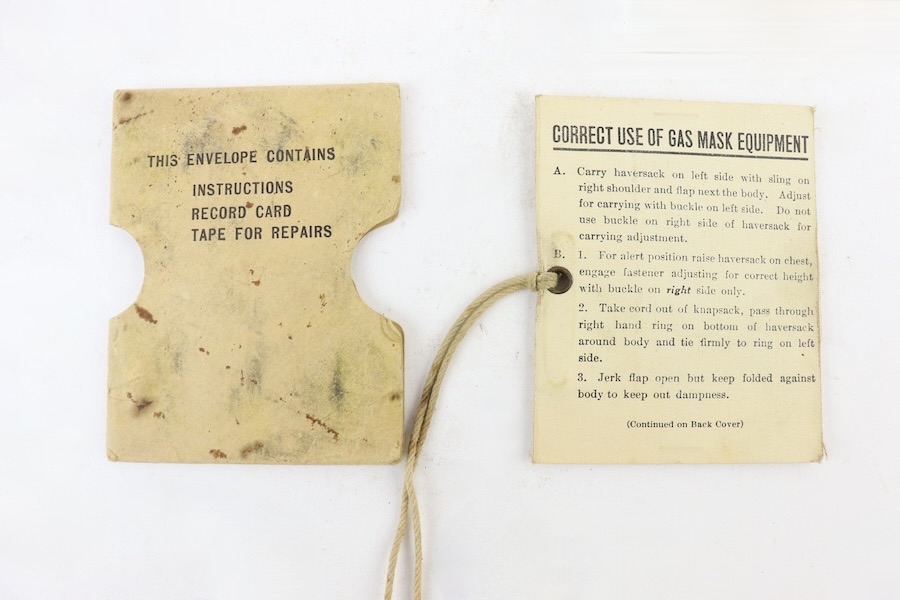 THIS ENVELOPE CONTAINS
INSTRUCTIONS
RECORD CARD
TAPE FOR REPAIRS
CORRECT USE OF GAS MASK EQUIPMENT
A. Carry haversack on left side with sling on
right shoulder and flap next the body. Adjust
for carrying with buckle on left side. Do not
use buckle on right side of haversack for
carrying adjustment.
B. 1. For alert position raise haversack on chest,
engage fastener adjusting for correct height
with buckle on right side only.
2. Take cord out of knapsack, pass through
right hand ring on bottom of haversack
around body and tie firmly to ring on left
side.
3. Jerk flap open but keep folded against
body to keep out dampness.
(Continued on Back Cover)